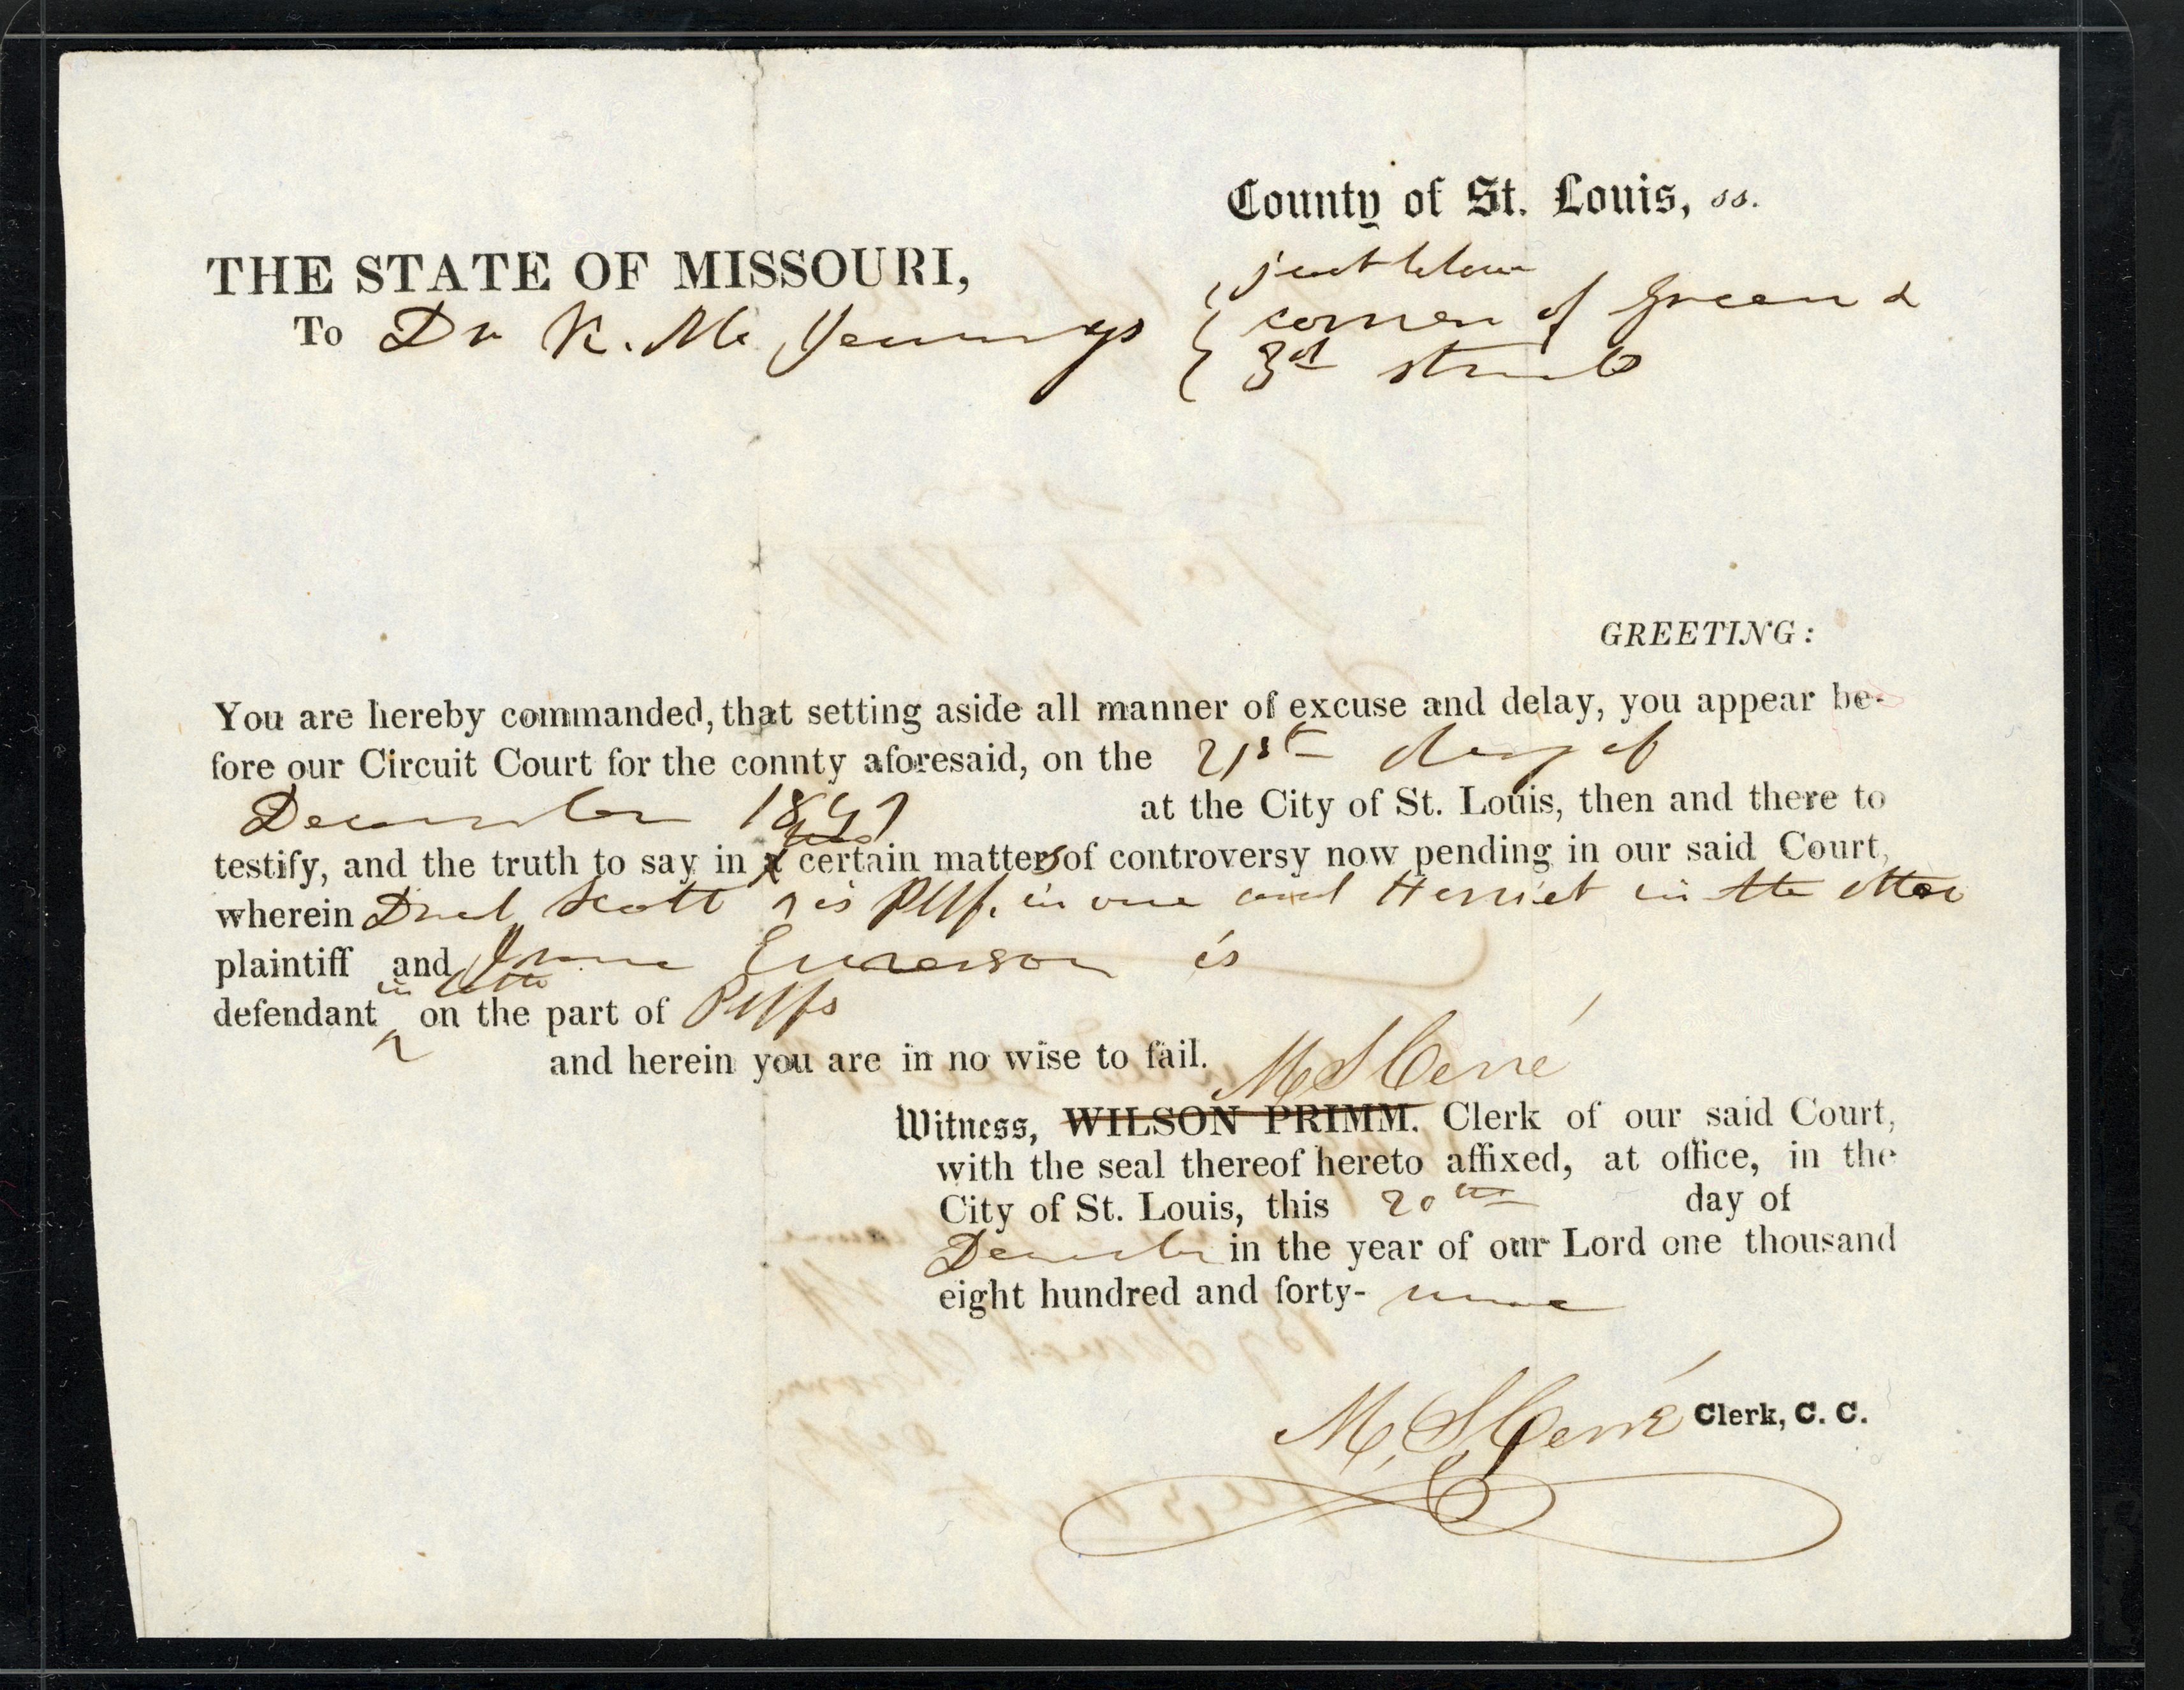 County of St. Louis, ss.
THE STATE OF MISSOURI,
just below
To Dr R. M. Jennings { corner of Green &
3rd streets
GREETING:
You are hereby commanded, that setting aside all manner of excuse and delay, you appear be-
fore our Circuit Court for the connty aforesaid, on the 21st day of
December 1849 at the City of St. Louis, then and there to
two
testify, and the truth to say in a certain matters of controversy now pending in our said Court,
wherein Dred Scott is Plff. in one and Harriet in the other
plaintiff and Irene Emerson is
defendant in both on the part of Plffs
and herein you are in no wise to fail.
M S Cerré
Witness, WILSON PRIMM. Clerk of our said Court,
with the seal thereof hereto affixed, at office, in the
City of St. Louis, this 20th day of
December in the year of our Lord one thousand
eight hundred and forty- nine
M. S. Cerré Clerk, C. C.